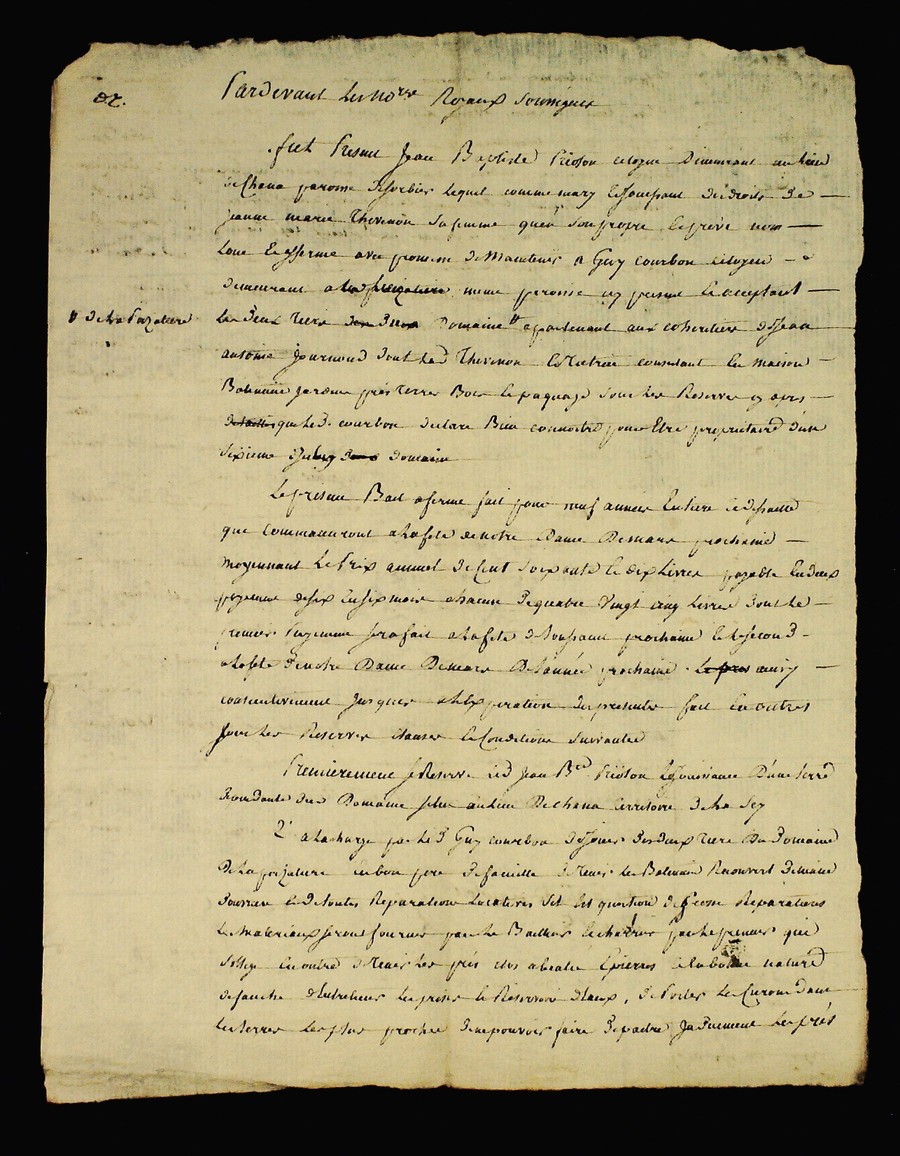 82.
Pardevant les no.res Royaux soussignes
fut Present Jean Baptiste citoyen Demeurant au lieu
de Chana paroisse lequel comme mary et jouissant des droits De
jeanne marie Thevenon sa femme qu'en son propre et privé nom
Loue et afferme avec promesse de Maintenir a Guy courbon citoyen
demeurant a meme paroisse cy present et acceptant
v de la Pazature
les Deux Tiers Domaine apartenant aux coheritiers de Jean
antoine Journoud dont lad Thevenon est consistant en maison
Batiment jardin prés Terres Bois et paquage sous les Reserves cy apres
que led. courbon declare Bien connoitre pour Etre propriétaire d'un
sixieme Domaine
Le present Bail a ferme fait pour neuf années Entiere et de suitte
que Commanceront a la fete de notre Dame De mars prochaine
moyennant le Prix annuel de Cent soixante et dix Livres payable En deux
payemens de six En six mois chacun De quatre Vingt cinq Livres Dont le
premier Payement sera fait a la fete de Toussaint prochaine et le second
a la fete De notre Dame De mars De l'année prochaine ainsy
consecutivement jusques a l'Expiration des presentes fait En outres
sous les Reserves clauses et Conditions suivantes
Premierement se Reserve led Jean B.te la Jouissance D'une terre
Dud Domaine au lieu De chana territoire De la
2° a la charge par led Guy courbon de Jouir Des deux Tiers Du Domaine
De la pazature En bon pere de famille de Tenir les Batimens Recouvert De main
D'ouvrier et de toutes Reparations locatives s'il est question de grosses Reparations
les Materiaux seront fournis par le Bailleur et charriés par le preneur qui
s'oblige En outre de Tenir les prés clos
de fauche d'Entretenir les prises et Reservoir d'Eaux, De Porter les Curons dans
les terres les plus proches De ne pouvoir faire Depaitre les prés